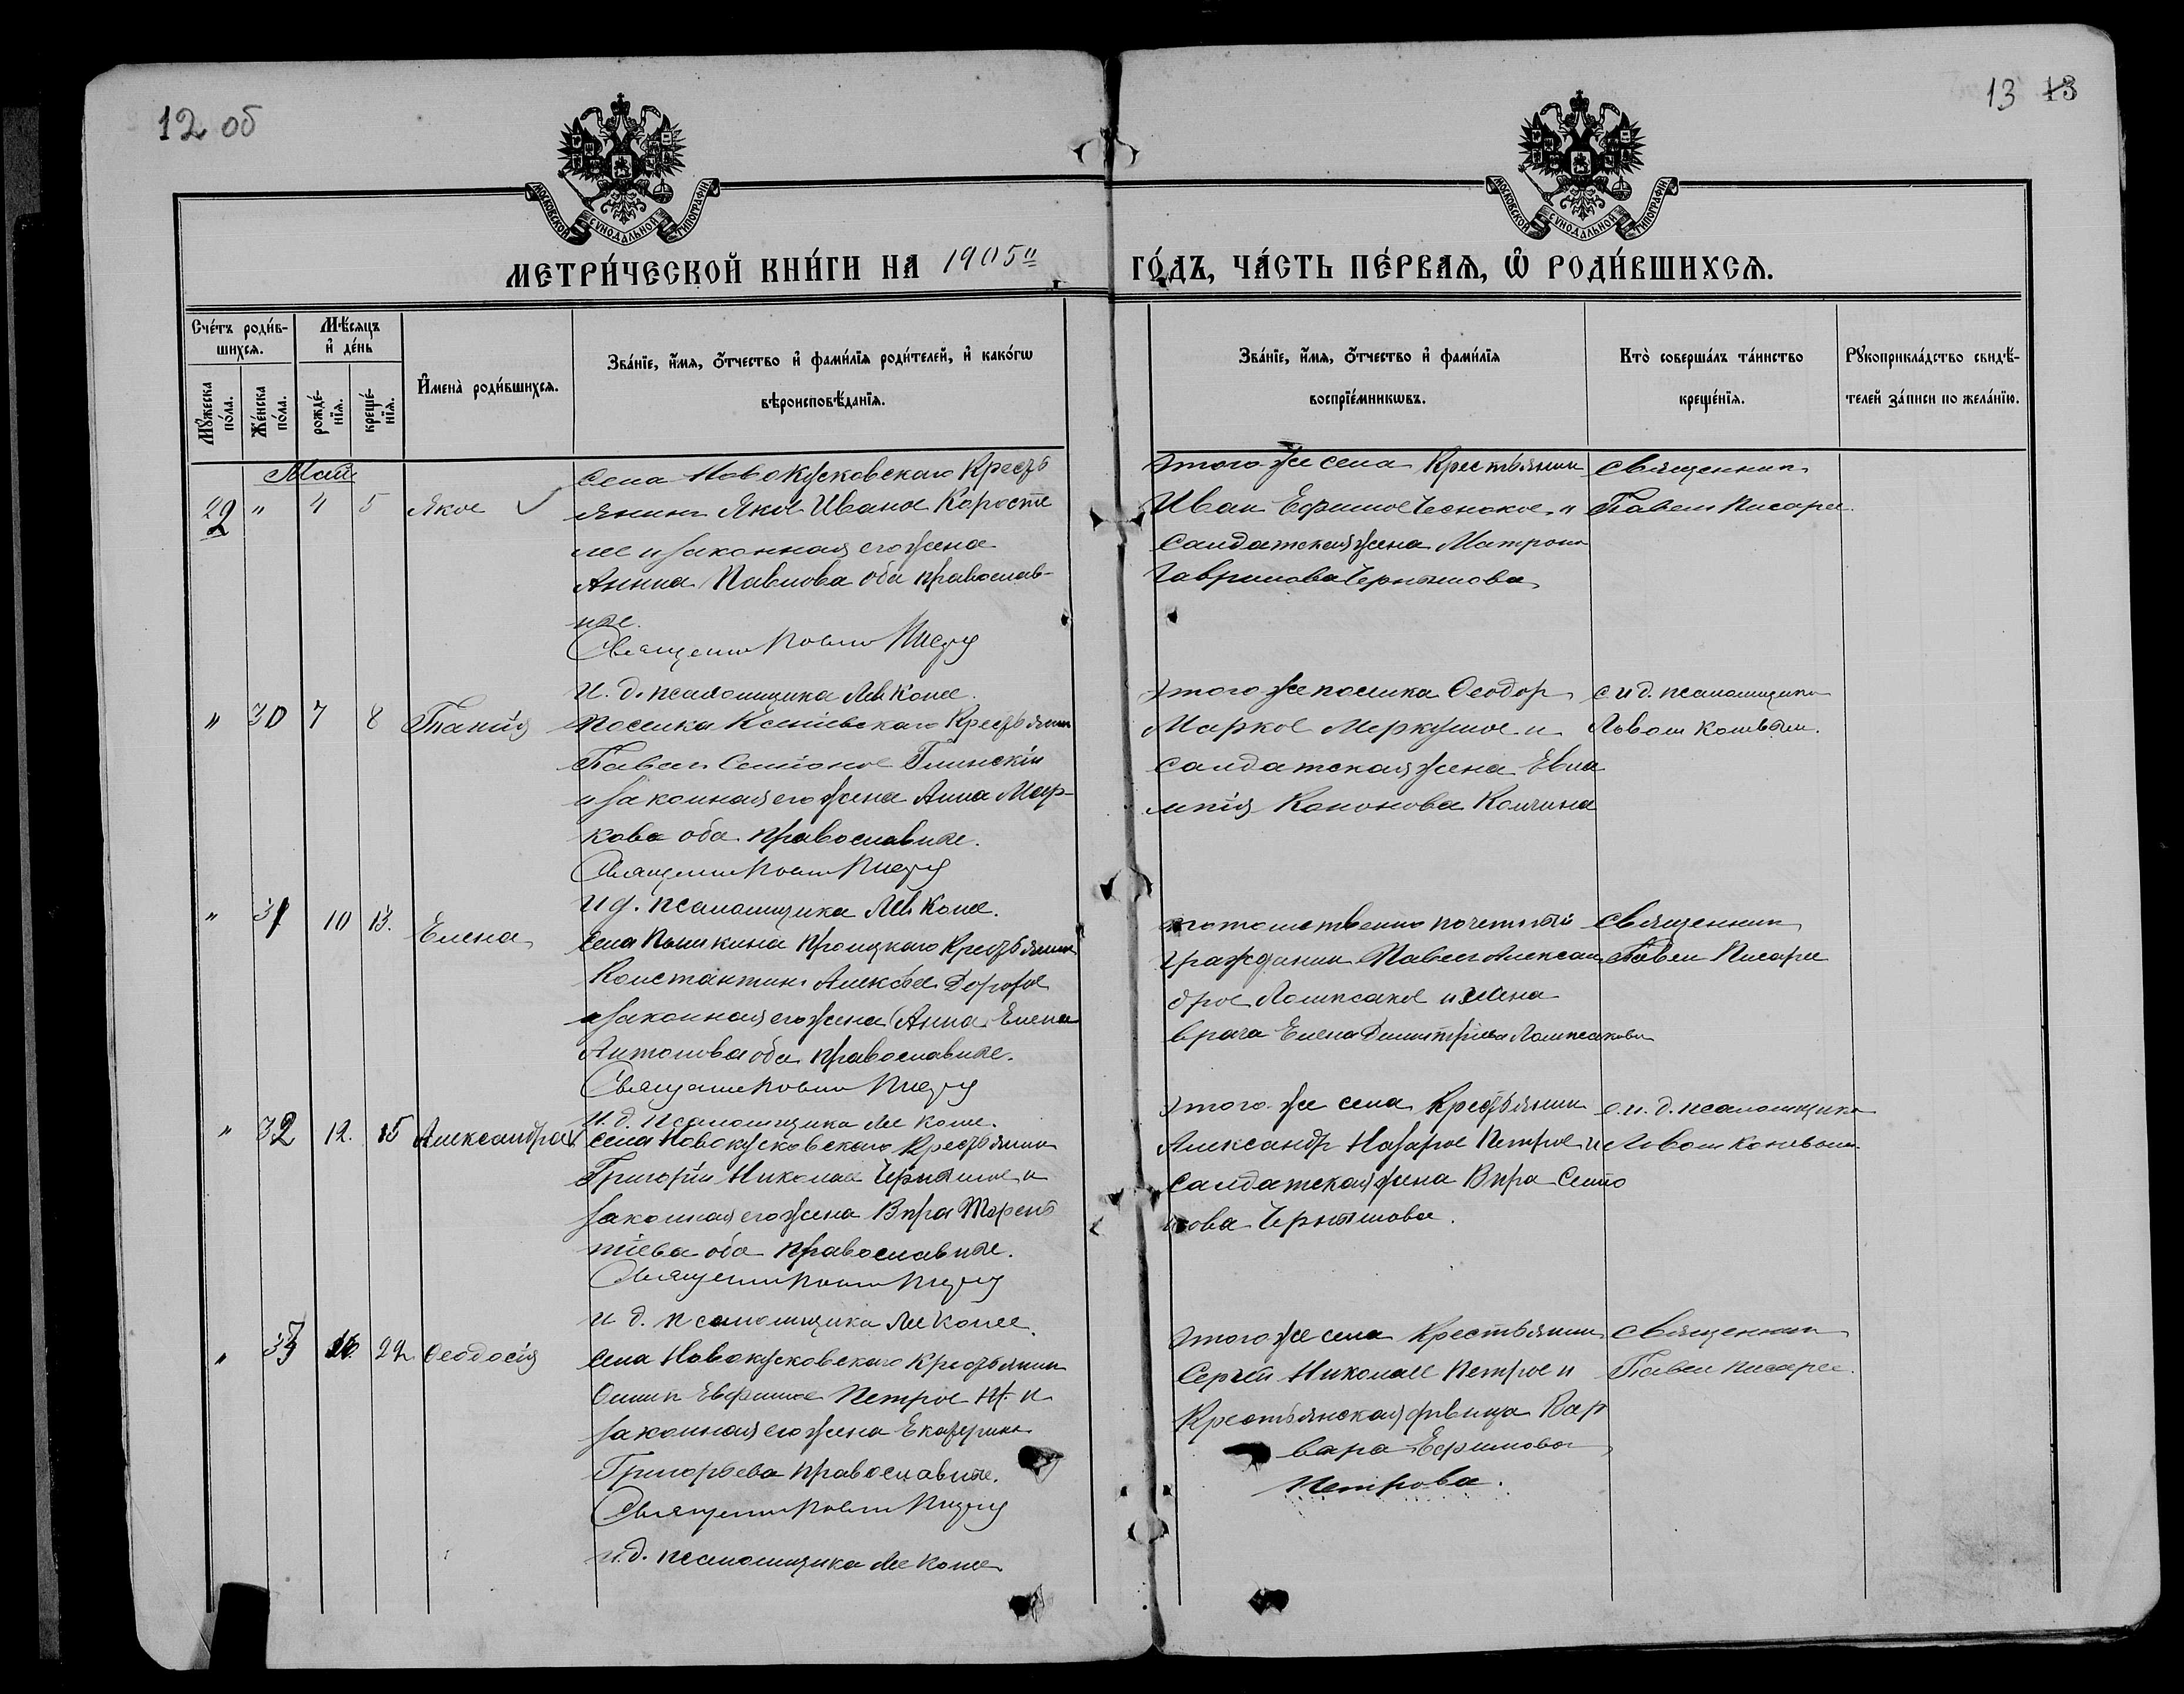 12 об
13 13
МОСКОВСКОЙ СѴНОДАЛЬНОЙ ТИПОГРАФІИ
МОСКОВСКОЙ СѴНОДАЛЬНОЙ ТИПОГРАФІИ
МЕТРИ́ЧЕСКОЙ КНИ́ГИ НА 1905й ГО́ДЪ, ЧА́СТЬ ПЕ́РВАѦ, Ѡ РОДИ́ВШИХСѦ.
Сче́тъ роди́в-
шихсѧ.
Мѣ́сѧцъ
и҆ де́нь
Мꙋ́жеска
по́ла.
Же́нска
по́ла.
рожде́-
нїѧ.
креще́-
нїѧ.
И҆мена̀ роди́вшихсѧ.
Зва́нїе, и҆́мѧ, ѻ҆́тчество и҆ фами́лїѧ роди́телей, и҆ како́гѡ
вѣроисповѣ́данїѧ.
Зва́нїе, и҆́мѧ, ѻ҆́тчество и҆ фами́лїѧ
воспрїе́мникѡвъ.
Кто̀ соверша́лъ та́инство
креще́нїѧ.
Рꙋкоприкла́дство свидѣ́-
телей за́писи по жела́нїю.
Май
22 " 4 5 Яков
Села Новокусковскаго Кресть
янин Яков Иванов Коросте
лев и законная его жена
Анна Павлова оба православ-
ные.
Священник Павел Писарев
И. д. псаломщика Лев Конев.
этого же села Крестьянин
Иван Ефимов Чесноков и
Салдатская жена Матрона
Гаврилова Чернышова
Священник
Павел Писарев.
" 30 7 8
поселка Ксеньевскаго Крестьянин
Павел Семионов Глинский
и законная его жена Анна Мар-
кова оба православные.
Священник Павел Писарев
И д. псаломщика Лев Конев.
этого же поселка Феодор
Марков Меркушов и
Салдатская жена Евла
мпия Кононова Колчина
с и д. псаломщика
Львом Коневым.
" 31 10 13. Елена
Села Троицкаго Крестьянин
Константин Алексеев Дорофов
и законная его жена Анна Елена
Антонова оба православные.
Священник Павел Писарев
И. д. Псаломщика Лев Конев.
потомственно почетный
гражданин Павел Алексан
дров и жена
врача Елена Димитриева
Священник
Павел Писарев
" 32 12. 15 Александра
Села Новокусковскаго Крестьянин
Григорий Николаев Чернышов и
законная его жена Вера Терень
тиева оба православные.
Священник Павел Писарев
И д. псаломщика Лев Конев.
этого же села Крестьянин
Александр Назаров Петров и
Салдатская жена Вера Семио
нова Чернышова.
с. и. д. псаломщика
Львом Коневым.
" 33 16. 22 Феодосия
Села Новокусковскаго Крестьянин
Осип Евфимов Петров и
законная его жена Екатерина
Григорьева православные.
Священник Павел Писарев
и. д. псаломщика Лев Конев
этого же села Крестьянин
Сергей Николаев Петров и
Крестьянская девица Вар
вара Ефимова
Петрова.
Священник
Павел Писарев.